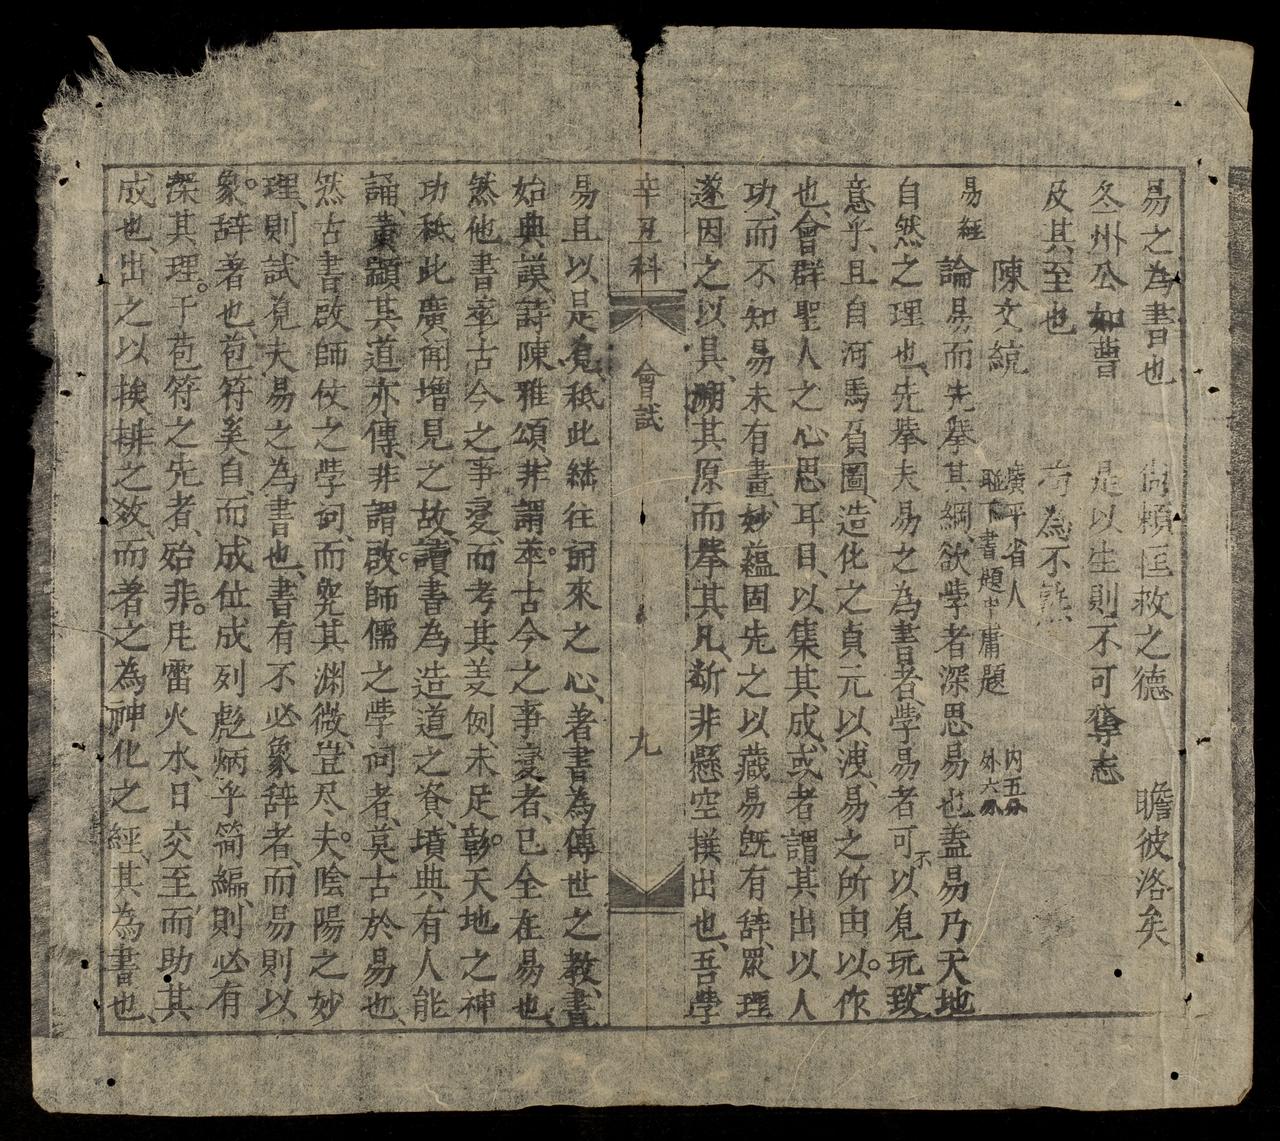 易之為書也 尚賴匡救之德 瞻彼洛矣
冬州公如曹 是以生則不可奪志
及其至也 為不
陳文綂 廣平省人 內五分
聀下書題中庸題 外六分
易經 論易而先挙其綱欲學者深思易也蓋易乃天地
自然之理也先挙夫易之為書者學易者可不以見玩致
意乎且自河馬負圖造化之貞元以洩易之所由以作
也會群聖人之心思耳目以集其成或者謂其出以人
功而不知易未有畫妙蘊固先之以藏易既有辞眾理
遂因之以具溯其原而挙其凡断非懸空撰出也吾學
辛丑科 會試 九
易且以是見秪此繙往詞來之心著書為傳世之教書
始典謨詩陳雅頌非謂萃古今之事变者已全在易也
然他書率古今之事変而考其义例未足彰天地之神
功秪此廣闻增見之故讀書為造道之資墳典有人能
誦黃顓其道亦傳非謂啟師儒之學词者莫古於易也
然古書啟師伩之學词而究其渊微豈尽夫陰陽之妙
理則試覓夫易之為書也書有不必象辞者而易則以
象辞著也苞符奚自而成位成列彪炳乎简編則必有
深其理于苞符之先者始非凭雷火水日交至而助其
成也出之以挨排之效而著之為神化之經其為書也